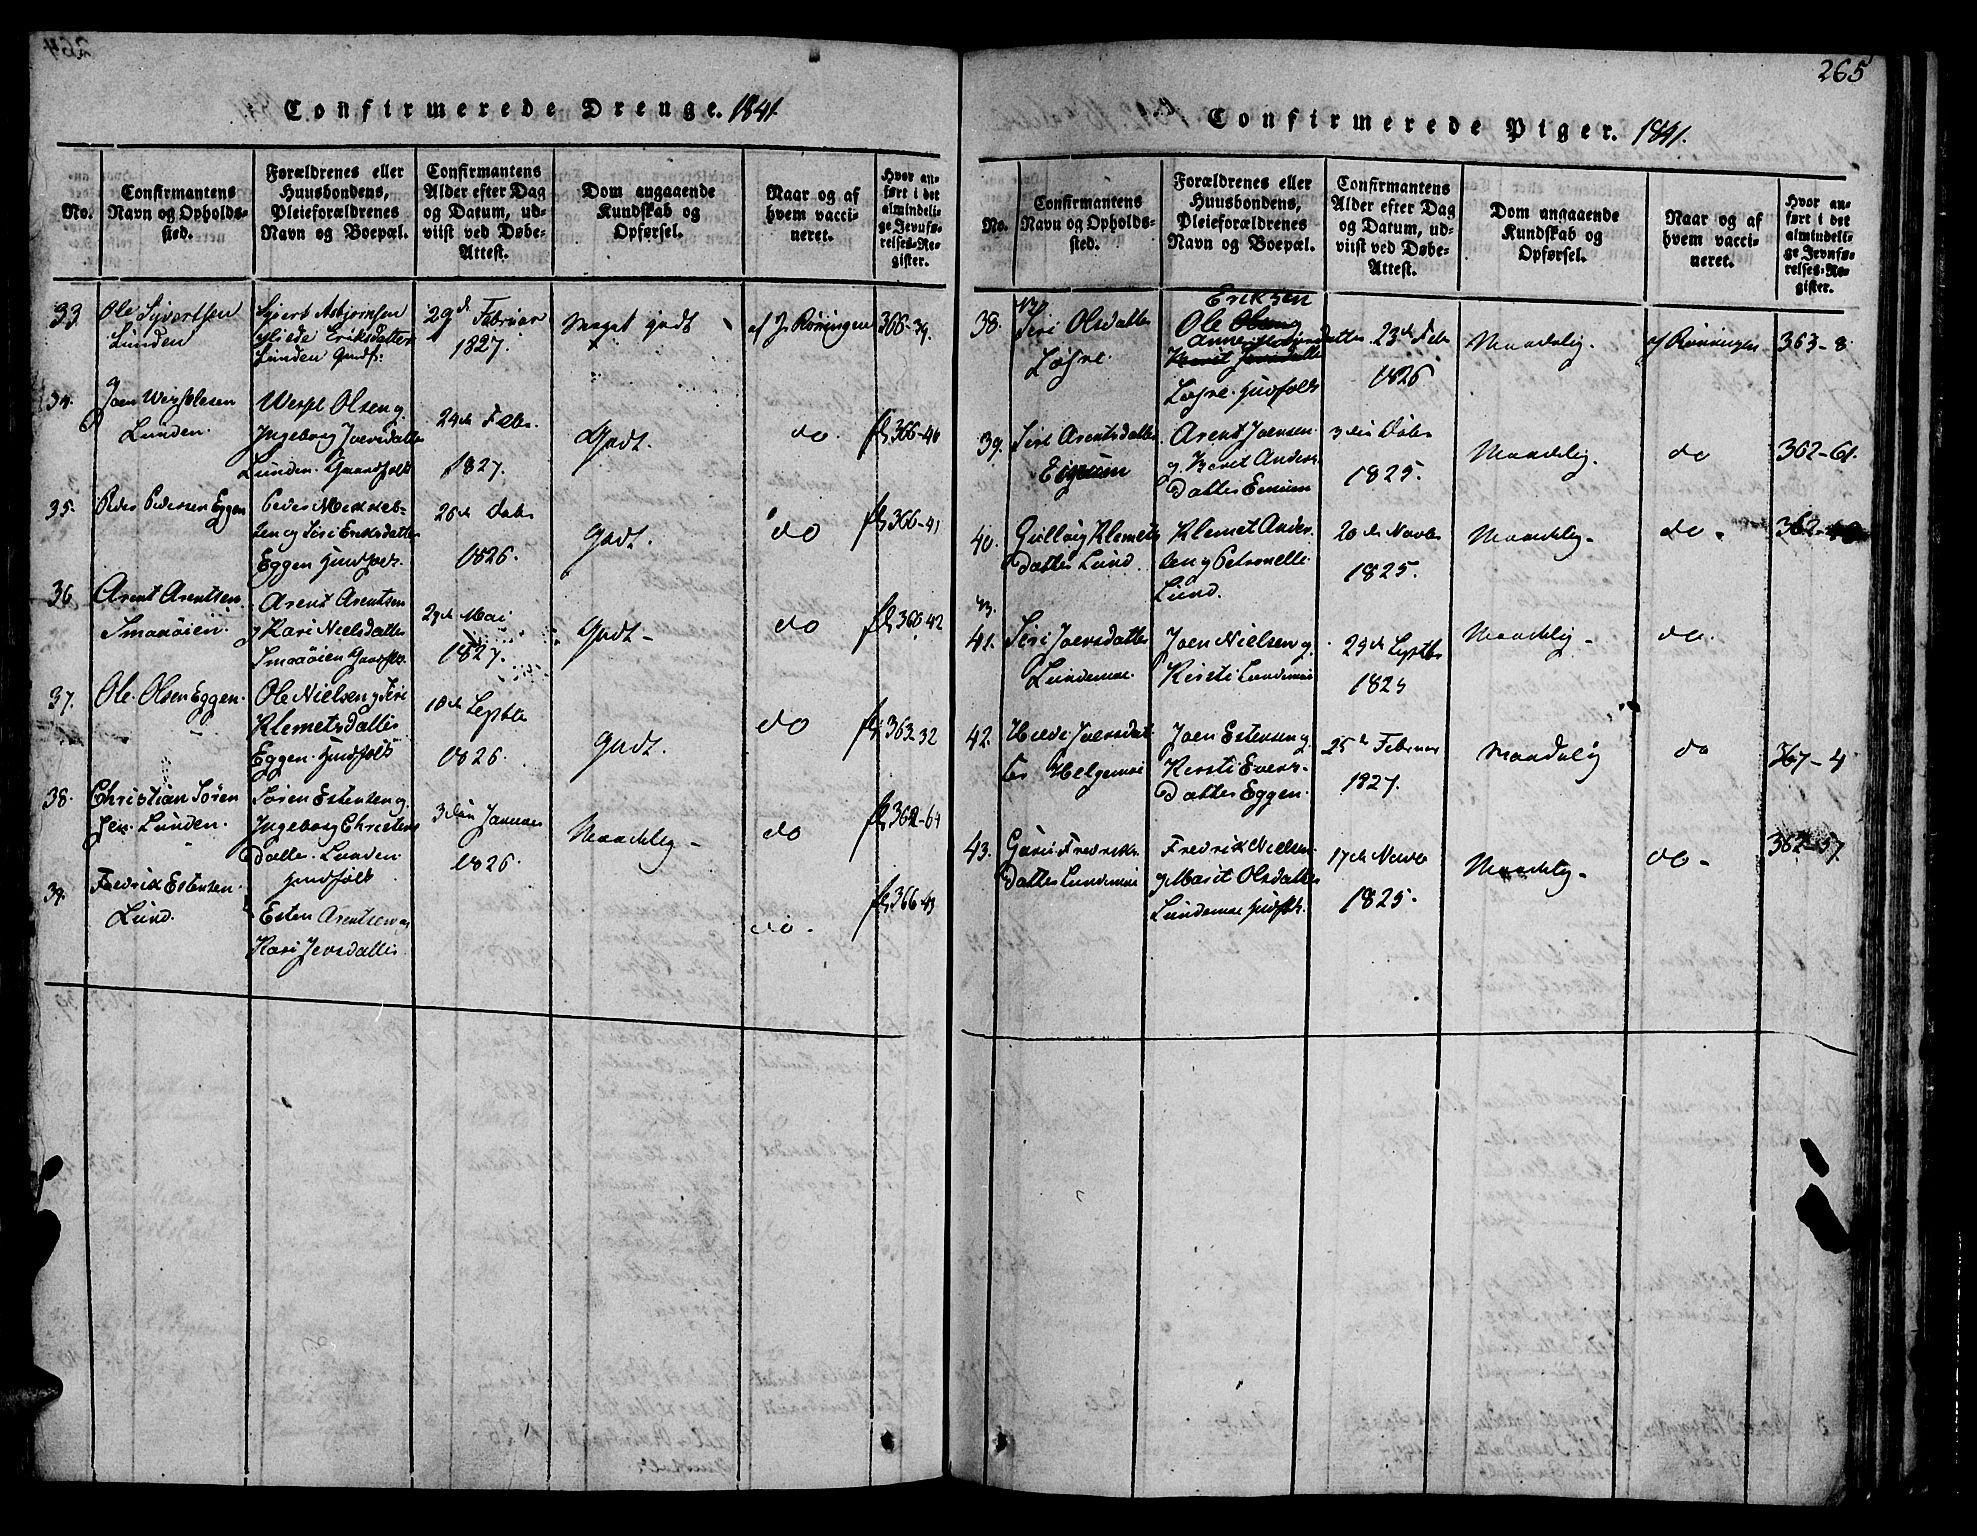 264
Confirmerede Drenge. 1841.
No.
Confirmantens Navn og Opholdssted.
Forældrenes eller Huusbondens, Pleieforældrenes Navn og Boepæl.
Confirmantens Alder efter Dag og Datum, udviist ved Døbe-Attest.
Dom angaaende Kundskab og Opførsel.
Naar og af hvem vaccineret.
Hvor anført i det almindelige Jevnførelses-Register.
33.
Ole Syvertsen
Lunden
Syvert Asbjørnsen
Eriksdatter
Lunden Gmdf.
29d Februar
1827.
Meget godt
af J. Rønningen
366-39.
34.
Joen
Lunden.
Olsen og
Ingeborg Joensdatter
Lunden.
24de Febr.
1827.
Godt.
do.
366-40
35.
Peder Pedersen Eggen
Peder Mikkel-
sen og Siri Eriksdatter
Eggen Huusfolk.
26de
1826.
Godt.
do
366-41
36
Arent Arentsen
Smaaøien.
Arent Arentsen
og Kari Nielsdatter
Smaaøien
29de Mai
1827.
Godt-
do
366 42
37.
Ole Olsen Eggen.
Ole Nielsen og Siri
Klemetsdatter
Eggen. Huusfolk
18de Septbr
1826.
Godt.
do
363-32
38.
Christian Søren
sen Lunden.
Søren Estensen og
Ingeborg Christens
datter. Lunden
Huusfolk
3die Januar
1826.
Maadelig-
do
362-64
39.
Fredrik Estensen.
Lund.
Esten Arentsen og
Kari Joensdatter.
do.
366-43
265
Confirmerede Piger. 1841.
No.
Confirmantens Navn og Opholdssted.
Forældrenes eller Huusbondens, Pleieforældrenes Navn og Boepæl.
Confirmantens Alder efter Dag og Datum, udviist ved Døbe-Attest.
Dom angaaende Kundskab og Opførsel.
Naar og af hvem vaccineret.
Hvor anført i det almindelige Jevnførelses-Register.
38.
Siri Olsdatter
Løhre.
Eriksen
Ole
Anne
Løhre. Huusfolk
23de Febr
1826
Maadelig.
af Rønningen
363-8.
39.
Siri Arentsdatter
Arent Joensen
og Berit Anders
datter
3die
1825.
Maadelig.
do
362-61.
40.
Gullvig Klemets
datter Lund.
Klemet Ander-
sen og Petronelle
Lund.
20de Novbr
1825.
Maadelig-
do-
41.
Siri Joensdatter
Lundemoe.
Joen Nielsen og
Kirsti Lundemoe
29de Septbr
1825
Maadelig-
do.
42.
Joensdat
ter
Joen Estensen og
Kirsti Evens-
datter Eggen.
25de Februar
1827.
Maadelig
do
367-4
43.
Guri Fredriks
datter Lundemoe
Fredrik Nielsen
og Marit Olsdatter
Lundemoe Huusfolk.
17de Novbr
1825.
Maadelig-
do-
362-57